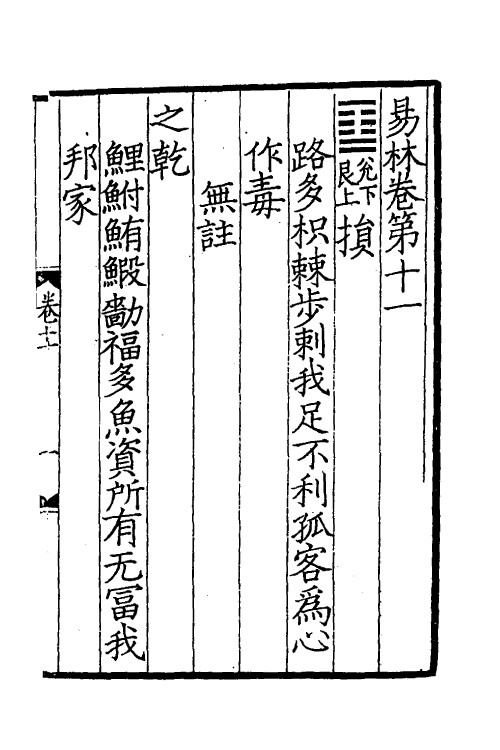 易林卷第十一
䷨兊下艮上損
路多枳棘步刺我足不利孤客爲心
作毒
無註
之乾
鯉鮒鮪鰕勸福多魚資所有无冨我
邦家
卷十一
一